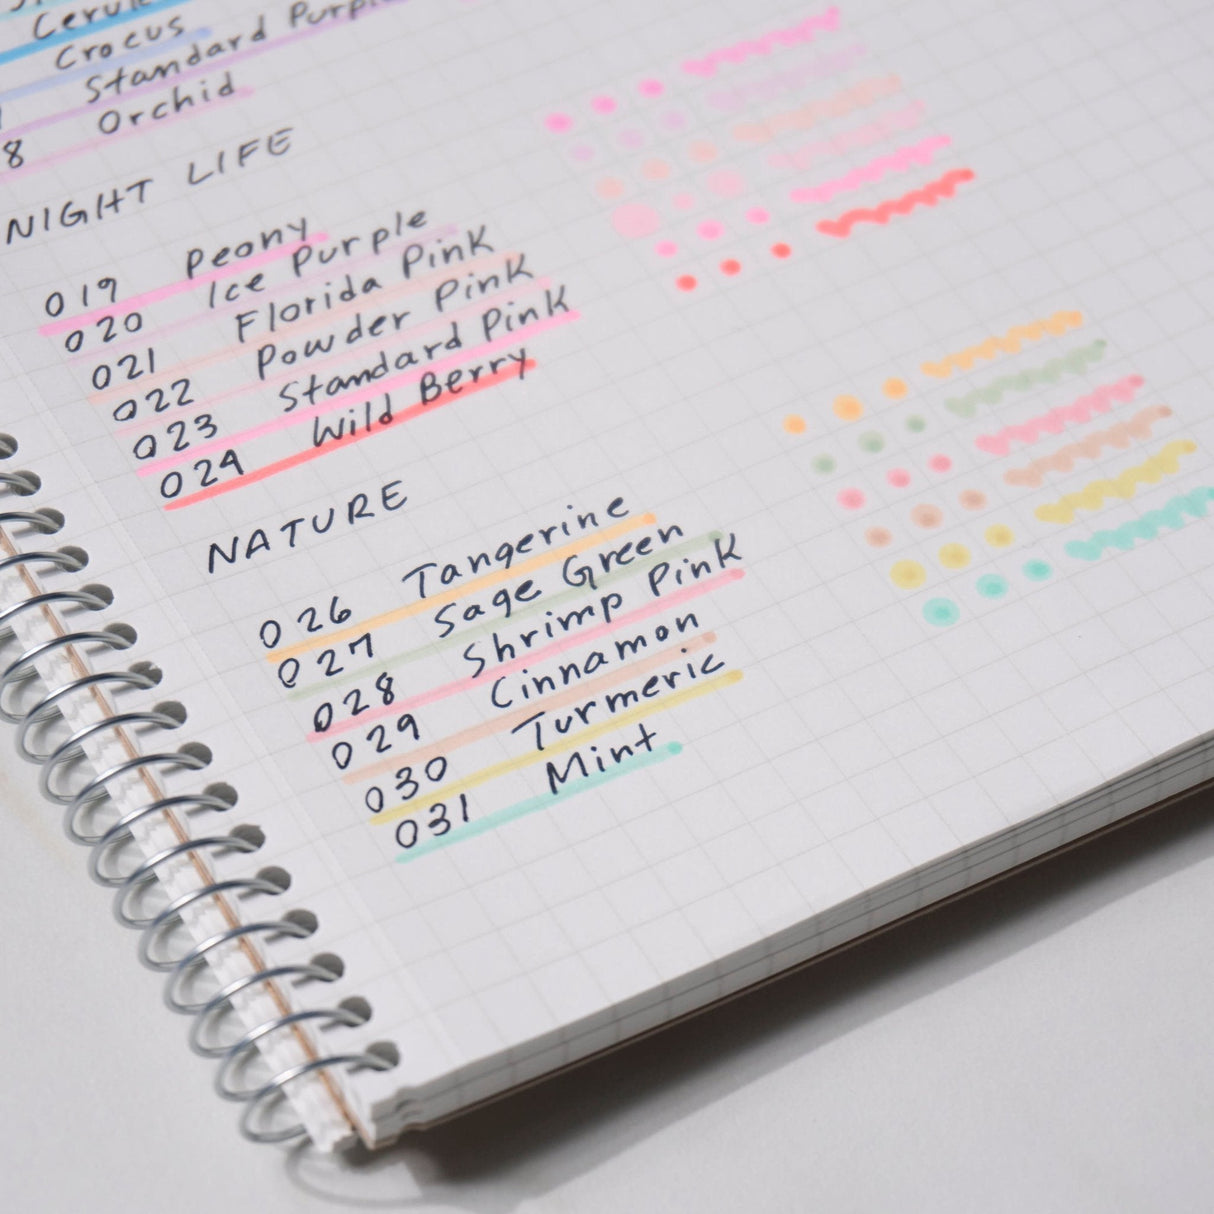 Crocus
Standard Purple
8 Orchid
NIGHT LIFE
019 Peony
020 Ice Purple
021 Florida Pink
022 Powder Pink
023 Standard Pink
024 Wild Berry
NATURE
026 Tangerine
027 Sage Green
028 Shrimp Pink
029 Cinnamon
030 Turmeric
031 Mint